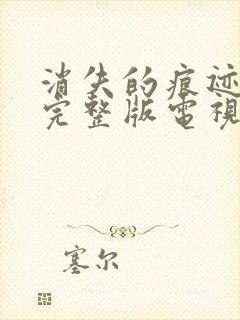 消失的痕迹
完整版電視
塞尔